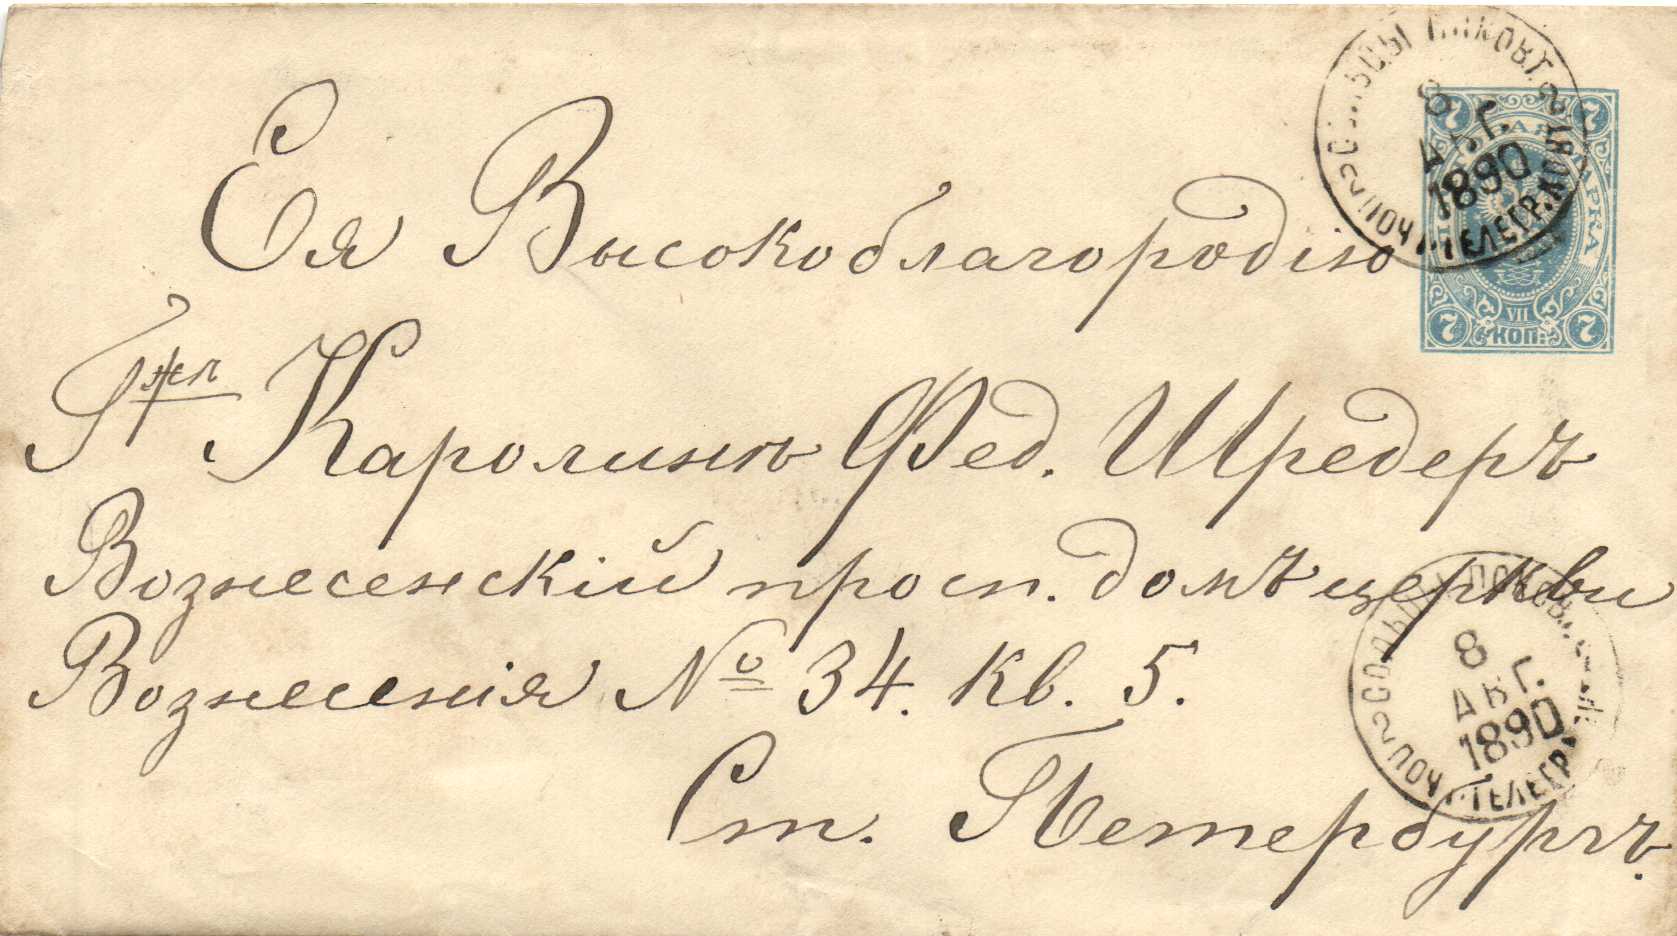 Ея Высокоблагородію
Г-жѣ Каролинѣ Фед. Шредеръ
Вознесенскій просп. домъ церкви
Вознесенія № 34. кв. 5.
Ст. Петербургъ.
8
АВГ.
1890
ТЕЛЕГР.
7 7
МАРКА
7 VII 7
КОП.
СОЛЬЦЫ
8
АВГ.
1890
ТЕЛЕГР.